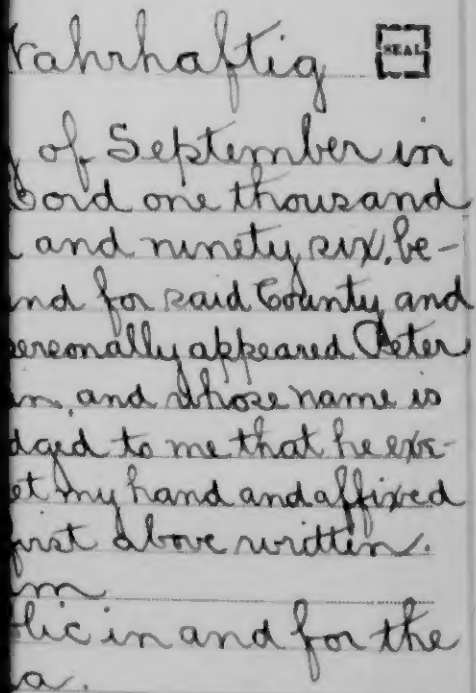 Wahrhaftig SEAL
of September in
Lord one thousand
and ninety six, be-
nd for said County and
ersonally appeared Peter
in, and whose name is
dged to me that he exe-
et my hand and affixed
first above written.
m
lic in and for the
a.